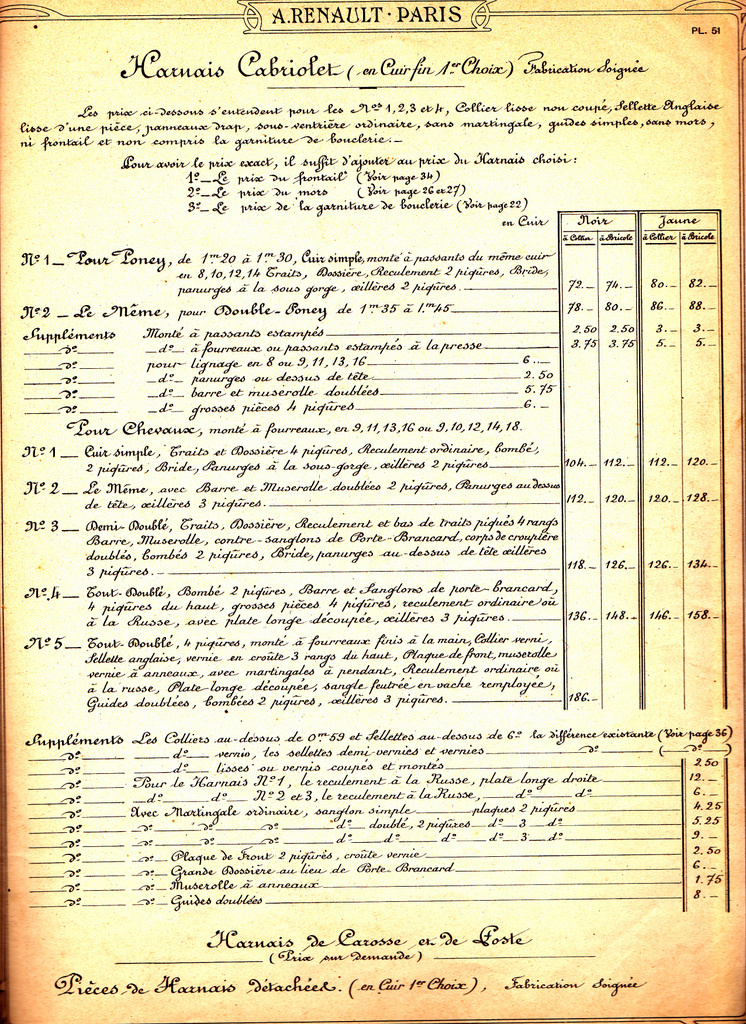 A. RENAULT · PARIS
PL. 51
Harnais Cabriolet (en Cuir fin 1er Choix) Fabrication Soignée
Les prix ci-dessous s'entendent pour les Nos 1, 2, 3 et 4, Collier lisse non coupé, Sellette Anglaise
lisse d'une pièce, panneaux drap, sous-ventrière ordinaire, sans martingale, guides simples, sans mors,
ni frontail et non compris la garniture de bouclerie. —
Pour avoir le prix exact, il suffit d'ajouter au prix du Harnais choisi :
1º — Le prix du frontail (Voir page 34)
2º — Le prix du mors (Voir page 26 et 27)
3º — Le prix de la garniture de bouclerie (Voir page 22)
en Cuir Noir Jaune
à Collier à Bricole à Collier à Bricole
Nº 1 — Pour Poney, de 1m20 à 1m30, Cuir simple, monté à passants du même cuir
en 8, 10, 12, 14 Traits, Dossière, Reculement 2 piqûres, Bride,
panurges à la sous gorge, œillères 2 piqûres. 72. — 74. — 80. — 82. —
Nº 2 — Le Même, pour Double-Poney de 1m35 à 1m45 78. — 80. — 86. — 88. —
Suppléments Monté à passants estampés 2.50 2.50 3. — 3. —
dº — dº — à fourreaux ou passants estampés à la presse 3.75 3.75 5. — 5. —
dº pour lignage en 8 ou 9, 11, 13, 16 6. —
dº — dº — panurges ou dessus de tête 2.50
dº — dº — barre et muserolle doublées 5.75
dº — dº — grosses pièces 4 piqûres 6. —
Pour Chevaux, monté à fourreaux, en 9, 11, 13, 16 ou 9, 10, 12, 14, 18.
Nº 1 — Cuir simple, Traits et Dossière 4 piqûres, Reculement ordinaire, bombé,
2 piqûres, Bride, Panurges à la sous-gorge, œillères 2 piqûres 104. — 112. — 112. — 120. —
Nº 2 — Le Même, avec Barre et Muserolle doublées 2 piqûres, Panurges au dessus
de tête, œillères 3 piqûres. 112. — 120. — 120. — 128. —
Nº 3 — Demi-Doublé, Traits, Dossière, Reculement et bas de traits piqués 4 rangs
Barre, Muserolle, contre-sanglons de Porte-Brancard, corps de croupière
doublés, bombés 2 piqûres, Bride, panurges au-dessus de tête œillères
3 piqûres. — 118. — 126. — 126. — 134. —
Nº 4 — Tout-Doublé, Bombé 2 piqûres, Barre et Sanglons de porte-brancard,
4 piqûres du haut, grosses pièces 4 piqûres, reculement ordinaire où
à la Russe, avec plate longe découpée, œillères 3 piqûres. 136. — 148. — 146. — 158. —
Nº 5 — Tout-Doublé, 4 piqûres, monté à fourreaux finis à la main, Collier verni,
Sellette anglaise, vernie en croûte 3 rangs du haut, Plaque de front, muserolle
vernie à anneaux, avec martingales à pendant, Reculement ordinaire où
à la russe, Plate-longe découpée, sangle feutrée en vache remployée,
Guides doublées, bombées 2 piqûres, œillères 3 piqûres. 186. —
Suppléments Les Colliers au-dessus de 0m59 et Sellettes au-dessus de 6º la différence existante (Voir page 36)
dº — dº — vernis, les sellettes demi-vernies et vernies dº ( dº )
dº — dº — lisses ou vernis coupés et montés 2.50
dº Pour le Harnais Nº 1, le reculement à la Russe, plate longe droite 12. —
dº — dº — dº — Nº 2 et 3, le reculement à la Russe, — dº — dº 6. —
dº Avec Martingale ordinaire, sanglon simple — plaques 2 piqûres 4.25
dº — dº — dº — dº — dº — doublé, 2 piqûres — dº — 3 — dº 5.25
dº — dº — dº — dº — dº — dº — dº — dº — 3 — dº 9. —
dº — dº — Plaque de Front 2 piqûres, croûte vernie 2.50
dº — dº — Grande Dossière au lieu de Porte-Brancard 6. —
dº — dº — Muserolle à anneaux 1.75
dº — dº — Guides doublées 8. —
Harnais de Carosse et de Poste
(Prix sur demande)
Pièces de Harnais détachées. (en Cuir 1er Choix), Fabrication Soignée